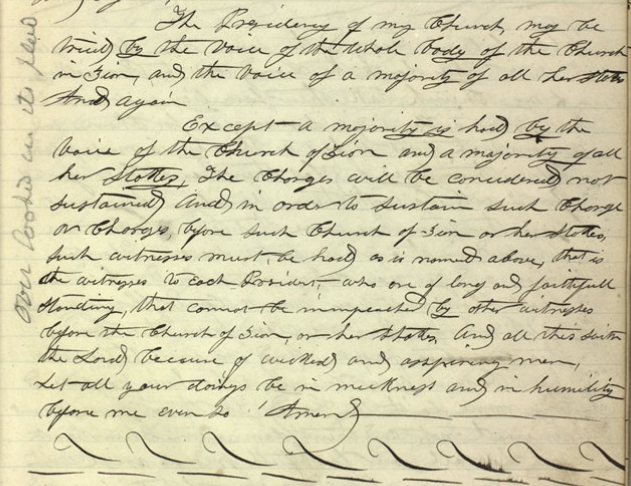 The Presidency of my Church, may be
tried by the voice of the whole body of the Church
in Zion, and the voice of a majority of all her Stakes
And again
Except a majority is had by the
voice of the Church of Zion and a majority of all
her Stakes, The Charges will be concidered not
sustained And in order to sustain such Charge
or Charges, before such Church of Zion or her Stakes,
such witnesses must be had as is named above, that is
the witnesses to each President, who are of long and faithfull
standing, that cannot be immpeached by other witnesses
before the Church of Zion, or her Stakes, And all this saith
the Lord because of wicked and asspiring men,
Let all your doings be in meekness and in humility
before me even so Amen
Over looked in its place